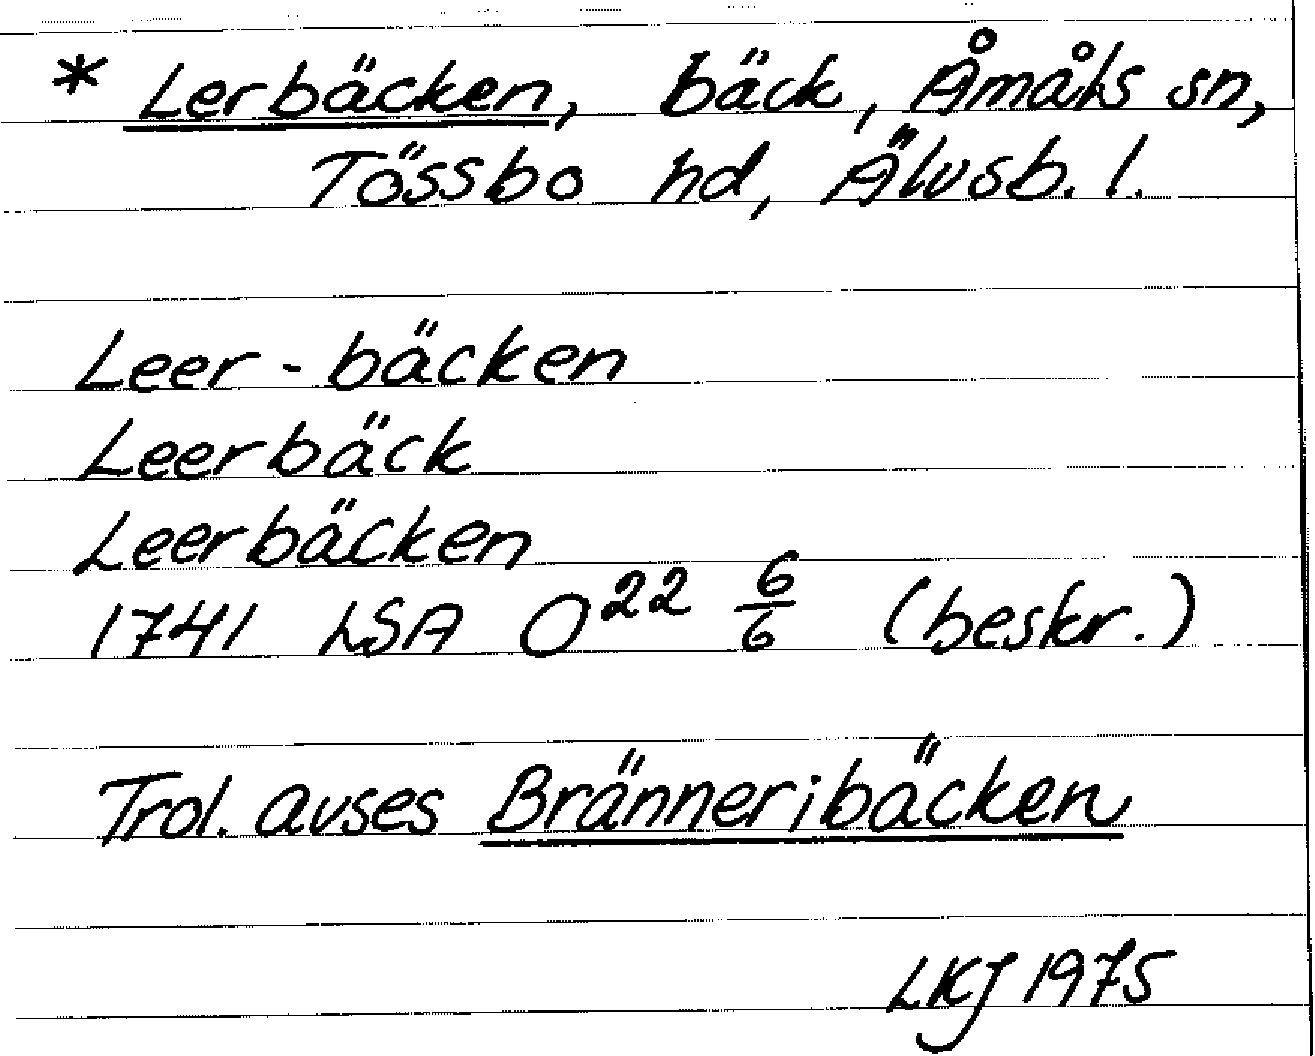 * Lerbäcken, bäck, Åmåls sn,
Tössbo hd, Älvsb. l.
Leer-bäcken
Leerbäck
Leerbäcken
1741 LSA O²² 6/6 (beskr.)
Trol. avses Bränneribäcken
LKJ 1975